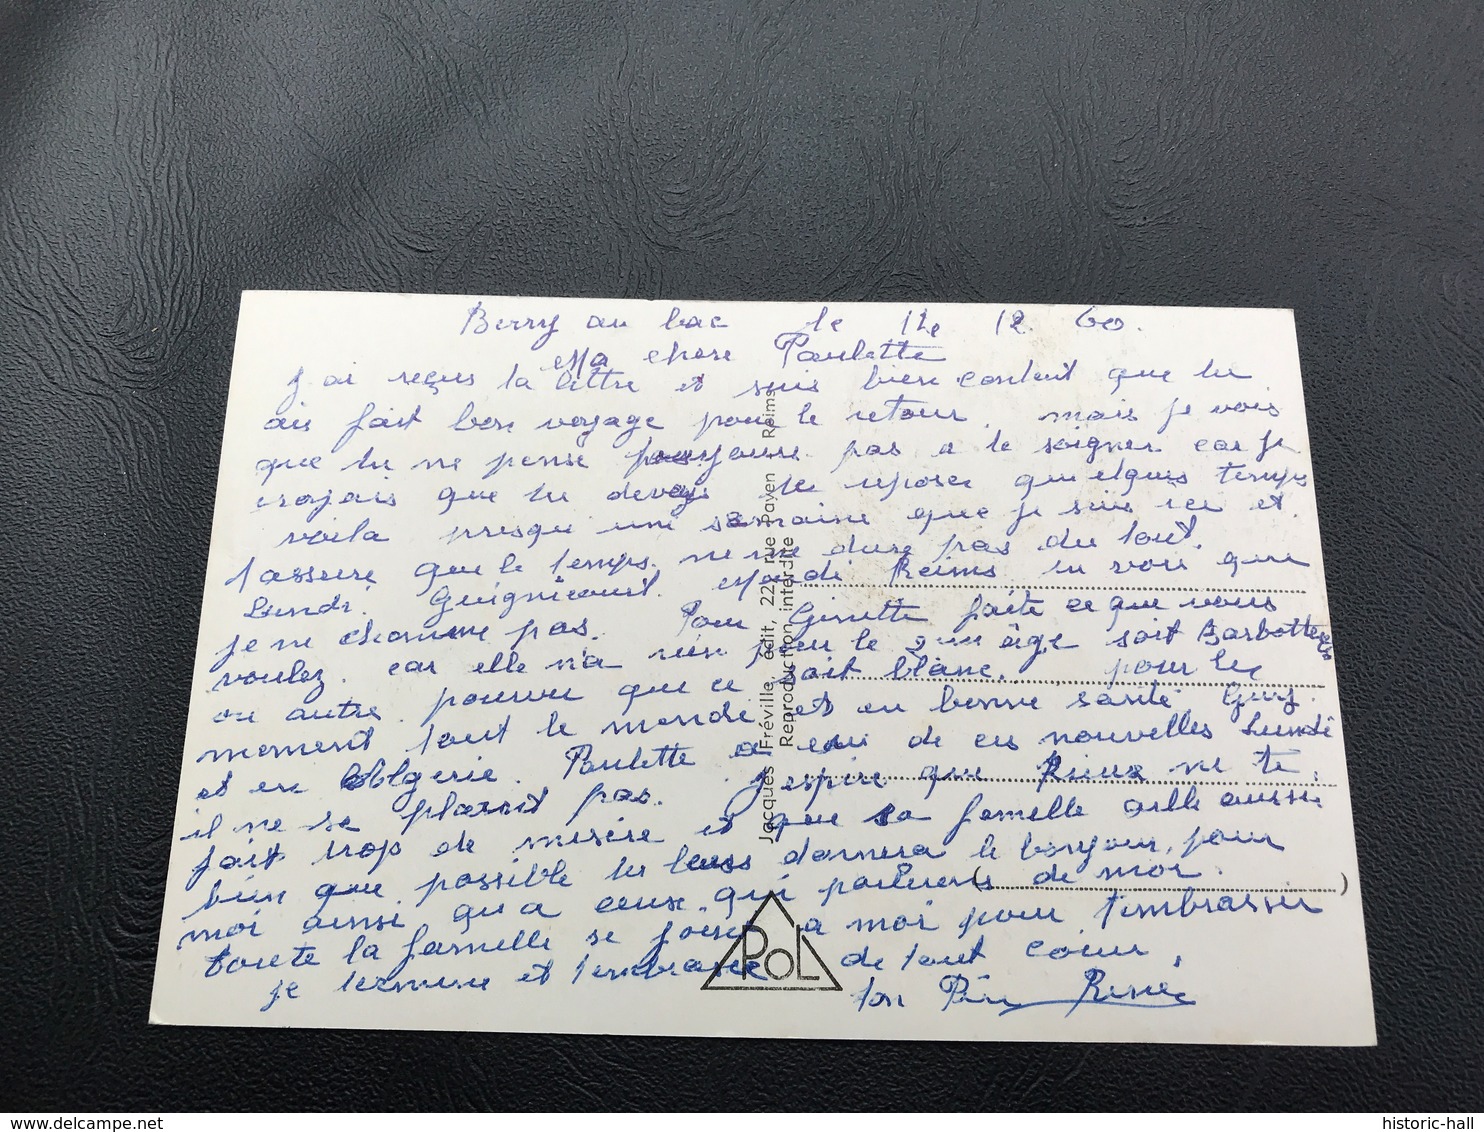 Berry au bac le 11e 12 60.
Ma chere Paulette
J ai reçus ta lettre et suis bien content que tu
ais fait bon voyage pour le retour, mais je vois
que tu ne pense pas a te soigner car je
croyais que tu devais te reposer quelques temps
voila presque une semaine que je suis ici et
t assure que le temps ne me dure pas du tout.
Lundi Guignicourt. Mardi Reims tu vois que
je ne chomme pas. Pour Ginette faite ce que vous
voulez. car elle n'a rien pour le 2em âge soit Barbotteuse
ou autre. pourvu que ce soit blanc. pour le
moment tout le monde est en bonne santé Guy
est en Algerie. Paulette a eu de ces nouvelles Lundi
il ne se plaint pas. J espire que ne te
fait trop de misère et que sa famelle aille aussi
bien que possible tu leurs donnera le bonjour, pour
moi ainsi qu a ceux qui parlerons de moi.
toute la famelle se joint a moi pour t embrasser
je termine et t embrasse de tout coeur,
ton Père René
Jacques Fréville, édit, 222 rue Payen - Reims
Reproduction interdite
POL
historic-hall